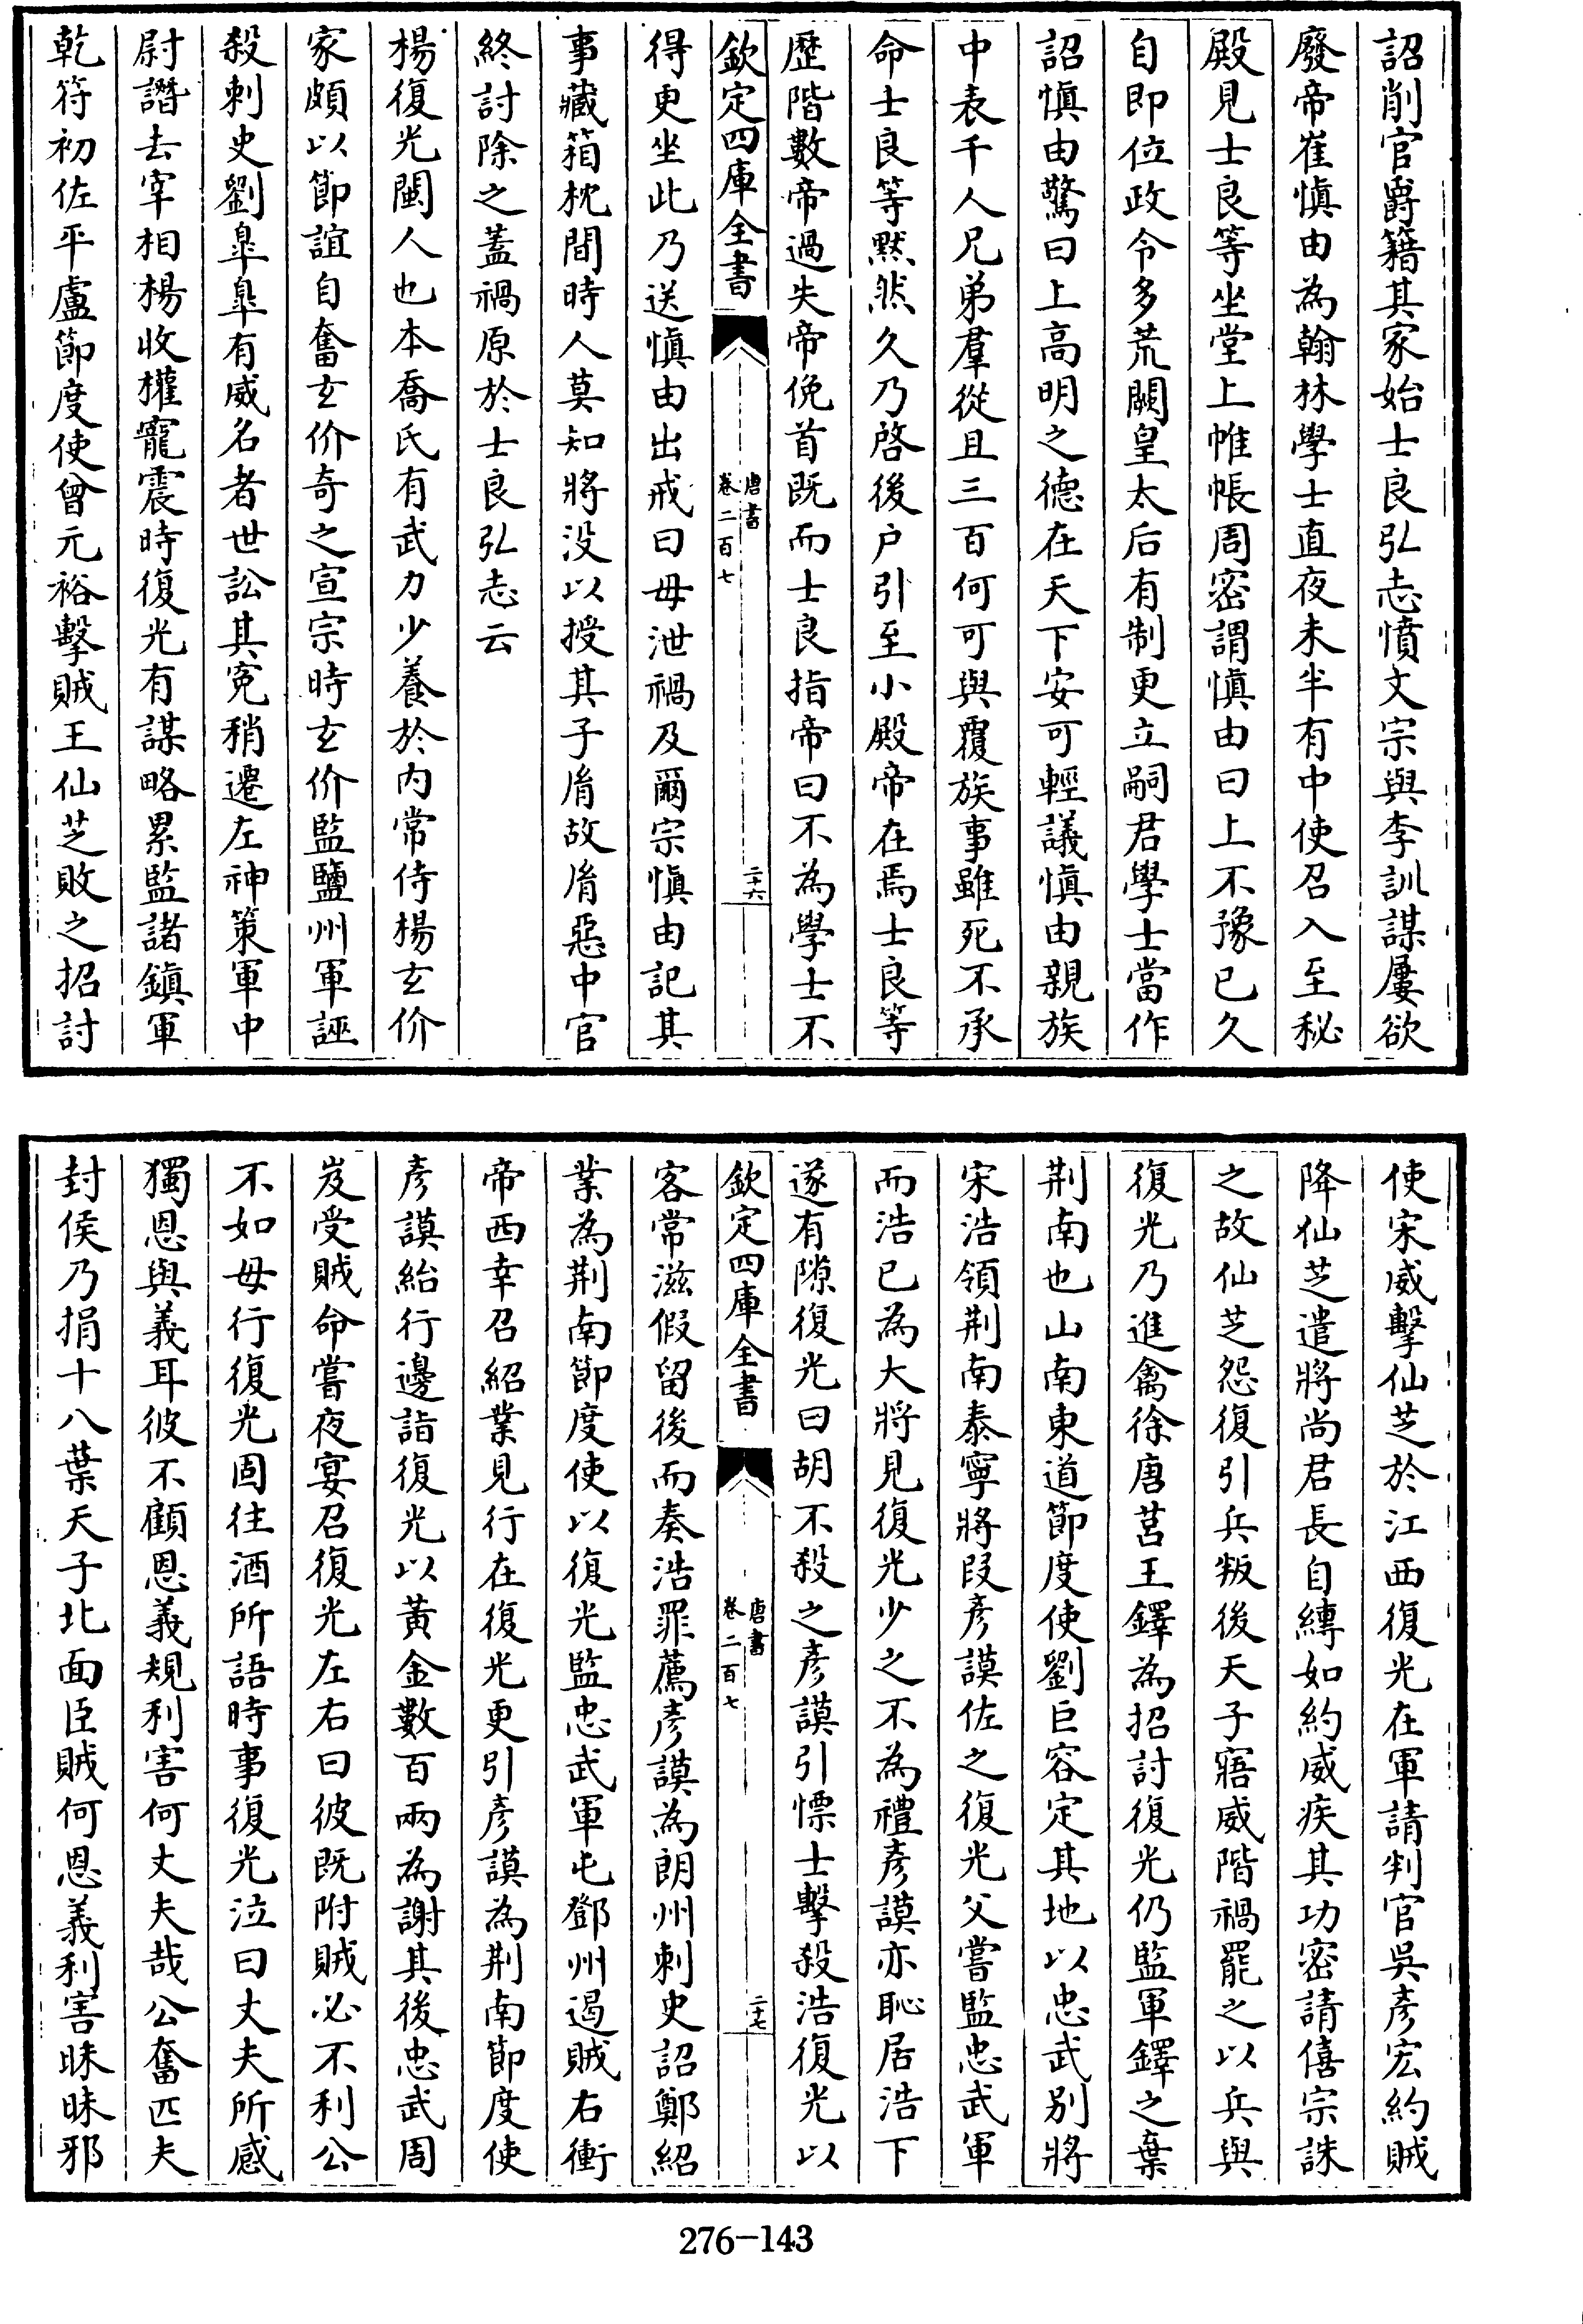 詔削官爵籍其家始士良弘志憤文宗與李訓謀屢欲
廢帝崔慎由為翰林學士直夜未半有中使召入至秘
殿見士良等坐堂上帷帳周密謂慎由曰上不豫已久
自即位政令多荒闕皇太后有制更立嗣君學士當作
詔慎由驚曰上高明之德在天下安可輕議慎由親族
中表千人兄弟羣從且三百何可與覆族事雖死不承
命士良等默然久乃啓後户引至小殿帝在焉士良等
歷階數帝過失帝俛首既而士良指帝曰不為學士不
欽定四庫全書
唐書
卷二百七
二十六
得更坐此乃送慎由出戒曰毋泄禍及爾宗慎由記其
事藏箱枕間時人莫知將没以授其子𦙍故𦙍惡中官
終討除之蓋禍原於士良弘志云
楊復光閩人也本喬氏有武力少養於内常侍楊玄价
家頗以節誼自奮玄价奇之宣宗時玄价監鹽州軍誣
殺刺史劉臯臯有威名者世訟其寃稍遷左神策軍中
尉譖去宰相楊收權寵震時復光有謀略累監諸鎮軍
乾符初佐平盧節度使曾元裕擊賊王仙芝敗之招討
使宋威擊仙芝於江西復光在軍請判官吳彥宏約賊
降仙芝遣將尚君長自縛如約威疾其功密請僖宗誅
之故仙芝怨復引兵叛後天子寤威階禍罷之以兵與
復光乃進禽徐唐莒王鐸為招討復光仍監軍鐸之棄
荆南也山南東道節度使劉巨容定其地以忠武别將
宋浩領荆南泰寧將段彥謨佐之復光父嘗監忠武軍
而浩已為大將見復光少之不為禮彥謨亦恥居浩下
遂有隙復光曰胡不殺之彥謨引慓士擊殺浩復光以
欽定四庫全書
唐書
卷二百七
二十七
客常滋假留後而奏浩罪薦彥謨為朗州刺史詔鄭紹
業為荆南節度使以復光監忠武軍屯鄧州遏賊右衝
帝西幸召紹業見行在復光更引彥謨為荆南節度使
彥謨紿行邊詣復光以黃金數百兩為謝其後忠武周
岌受賊命嘗夜宴召復光左右曰彼既附賊必不利公
不如毋行復光固往酒所語時事復光泣曰丈夫所感
獨恩與義耳彼不顧恩義規利害何丈夫哉公奮匹夫
封侯乃捐十八葉天子北面臣賊何恩義利害昧昧邪
276-143